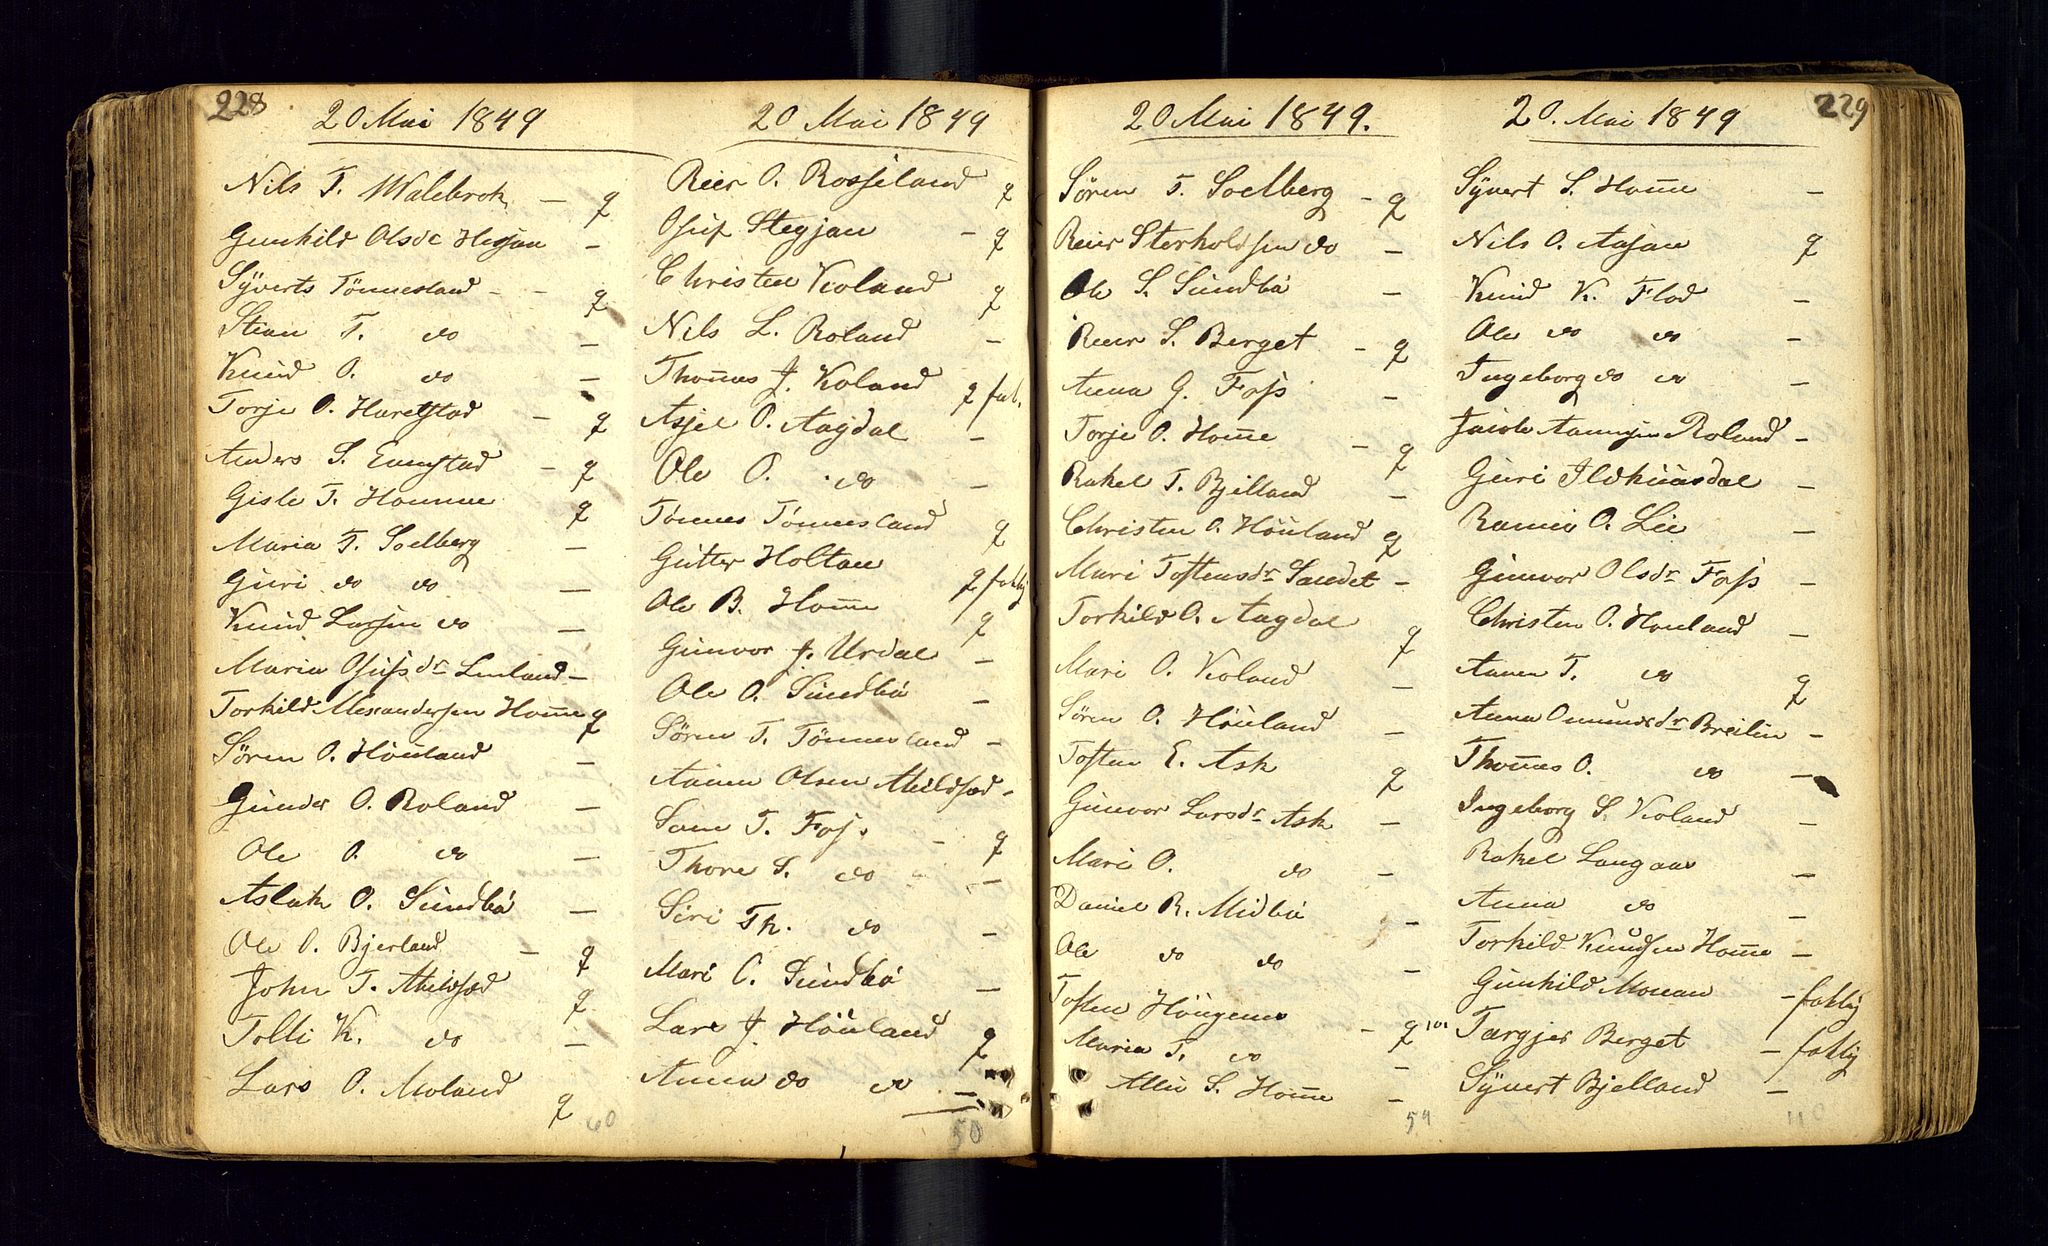 228
20 Mai 1849
Nils T. Walebrok — q
Gunhild Olsdr Hessan —
Syverts Tönnesland - - q
Stian T. do —
Knud O. do —
Torje O. Haretstad — q
Anders S. Eunestad — q
Gisle T. Homme q
Maria T. Soelberg —
Guri do do —
Knud Larsen do —
Maria Osufsdr Linland —
Torkild Alexandersen Home q
Sören O. Höuland —
Gunder O. Roland —
Ole O. do —
Aslak O. Sundbö —
Ole O. Bjerland — q
John T. Abildsød q
Tolli K. do —
Lars O. Moland q
60
20 Mai 1849
Reier O. Rosseland q
Osuf Stegjan — q
Christen Kvoland q
Nils L. Roland —
Thomes J. Koland q fat.
Asjel O. Aagdal —
Ole O. do —
Tönnes Tönnesland q
Gutter Holtan q fattig
Ole B. Home q
Gunvor J. Urdal —
Ole O. Sundbö —
Sören T. Tönnesland —
Aanen Olsen Abildsød -
Sam T. Foss — q
Thore S. do —
Siri Th. do —
Mari O. Sundbö —
Lars J. Höuland q
Anna do do —
50
20 Mai 1849.
Sören T. Soelberg - q
Reier Sterkoldsen do —
Ole S. Sundbö —
Reier S. Berget - q
Anna G. Foss —
Torje O. Home — q
Rakel T. Bjelland —
Christen O. Höuland q
Mari Tostensdr Sandet -
Torkild O. Aagdal q
Mari O. Kvoland —
Sören O. Höuland —
Tosten E. Ask q
Gunvor Larsdr Ask —
Mari O. do —
Daniel R. Midbö —
Ole do do —
Tosten Höugene - q
Maria T. do —
Allie S. Home —
54
229
20. Mai 1849
Syvert S. Home —
Nils O. Aasan q
Knud K. Flod —
Ole do do —
Ingeborg do do —
Jacob Aanensen Roland -
Guri Ildhuusdal —
Rannei O. Lie —
Gunvor Olsdr Foss —
Christen O. Houland —
Aanen T. do q
Anna Omundsdr Breilien -
Thomes O. do —
Ingeborg S. Kvoland —
Rakel Langaas —
Anna do —
Torkild Knudsen Home —
Gunhild Monan - fattig
101 Targjer Berget — fattig
Syvert Bjelland —
110